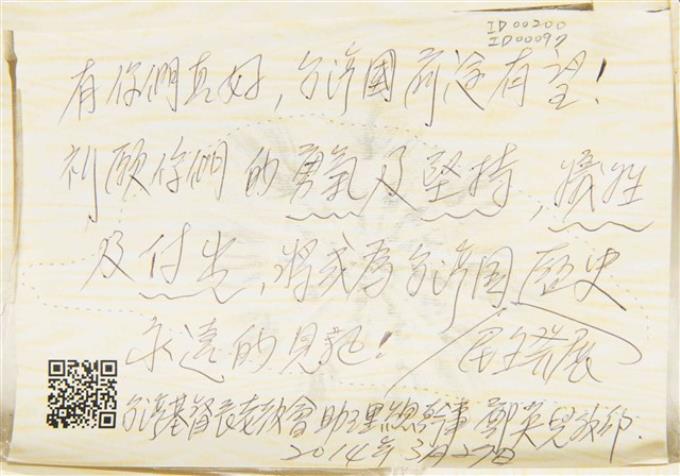 ID00200
ID00097
有你們真好，台湾國前途有望！
祈願你們的勇氣及堅持，犧牲
及付出，將成為台湾国歷史
民主發展
永遠的見証！
台湾基督長老教會助理總幹事 鄭英兒敬邱
2014年3月27日